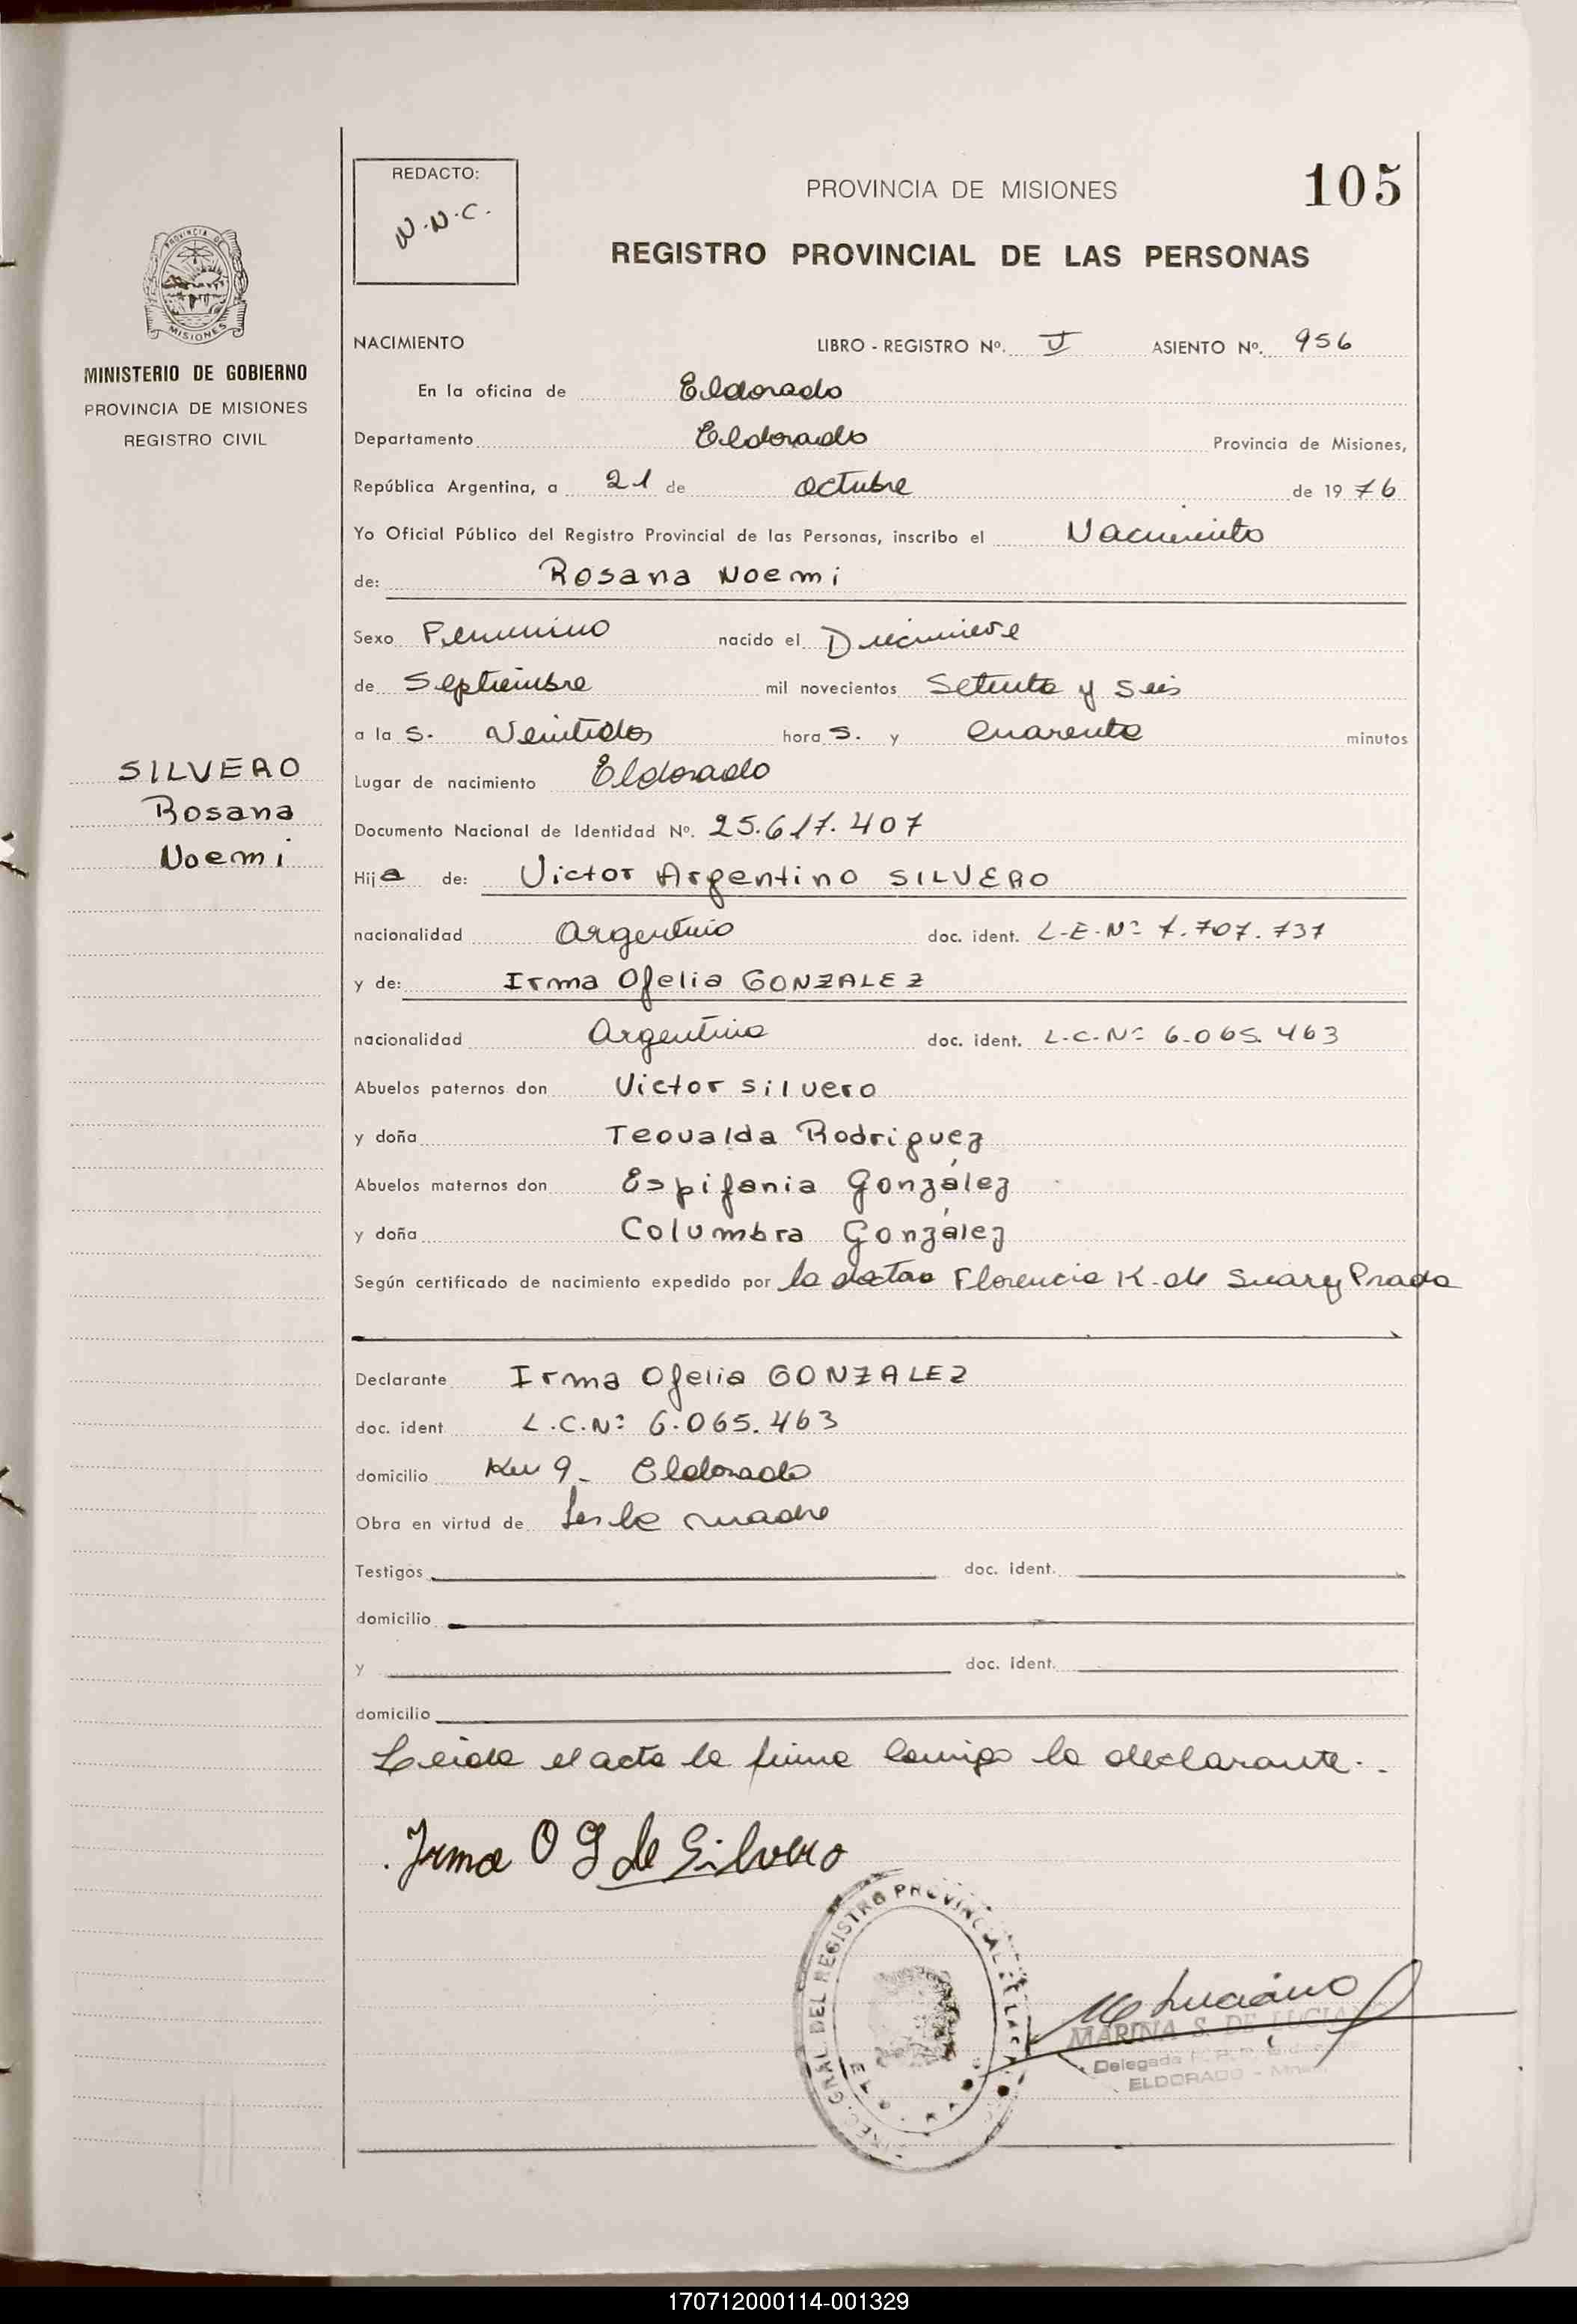 REDACTO:
N.N.C.
PROVINCIA DE MISIONES
105
REGISTRO PROVINCIAL DE LAS PERSONAS
PROVINCIA DE
MISIONES
MINISTERIO DE GOBIERNO
PROVINCIA DE MISIONES
REGISTRO CIVIL
NACIMIENTO LIBRO - REGISTRO Nº. V ASIENTO Nº. 956
En la oficina de Eldorado
Departamento Eldorado Provincia de Misiones,
República Argentina, a 21 de octubre de 19 76
Yo Oficial Público del Registro Provincial de las Personas, inscribo el Nacimiento
de: Rosana Noemi
Sexo Femenino nacido el Diecinueve
de Septiembre mil novecientos Setenta y Seis
a la s. Veintidos hora s. y Cuarenta minutos
SILVERO
Rosana
Noemi
Lugar de nacimiento Eldorado
Documento Nacional de Identidad Nº. 25.617.407
Hija de: Victor Argentino SILVERO
nacionalidad Argentino doc. ident. L.E.Nº 7.707.737
y de: Irma Ofelia GONZALEZ
nacionalidad Argentina doc. ident. L.C.Nº 6.065.463
Abuelos paternos don Victor Silvero
y doña Teovalda Rodriguez
Abuelos maternos don Espifania González
y doña Columbra González
Según certificado de nacimiento expedido por la doctora Florencia K. de Suarez Prada
Declarante Irma Ofelia GONZALEZ
doc. ident L.C.Nº 6.065.463
domicilio Km 9 - Eldorado
Obra en virtud de Ser la madre
Testigos doc. ident.
domicilio
y doc. ident.
domicilio
Leida el acta la firma conmigo la declarante.-
Irma O G de Silvero
GRAL. DEL REGISTRO PROVINCIAL DE LAS
M Luciano
MARINA S. DE LUCIANO
Delegada
ELDORADO - Mnes.
170712000114-001329